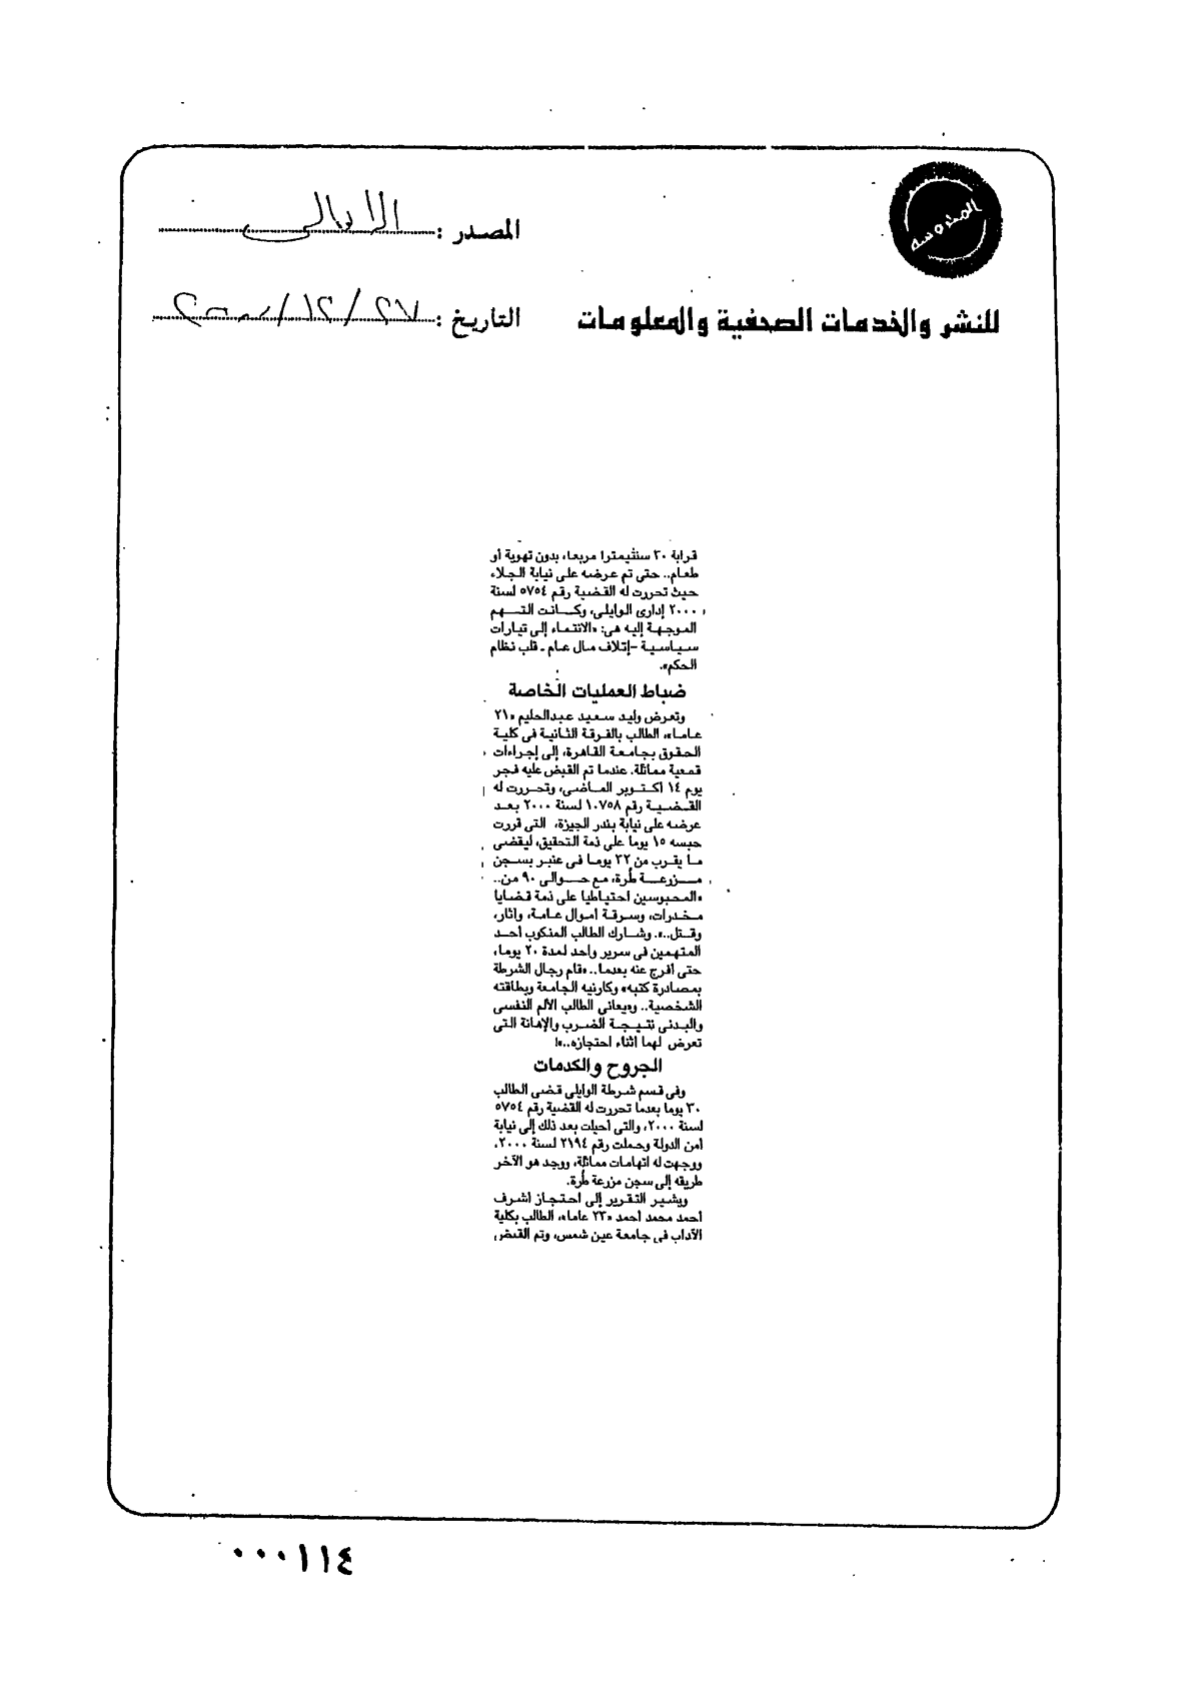 المحروسة
المصدر : الاهالى
للنشر والخدمات الصحفية والمعلومات
التاريخ : ٢٧ / ١٢ / ٢٠٠٠
قرابة ٣٠ سنتيمترا مربعا، بدون تهوية أو
طعام.. حتى تم عرضه على نيابة الجلاء
حيث تحررت له القضية رقم ٥٧٥٤ لسنة
٢٠٠٠ إدارى الوايلى، وكانت التهم
الموجهة إليه هى: «الانتماء إلى تيارات
سياسية -إتلاف مال عام - قلب نظام
الحكم».
ضباط العمليات الخاصة
وتعرض وليد سعيد عبدالحليم «٢١
عاما»، الطالب بالفرقة الثانية فى كلية
الحقوق بجامعة القاهرة، إلى إجراءات
قمعية مماثلة. عندما تم القبض عليه فجر
يوم ١٤ اكتوبر الماضى، وتحررت له
القضية رقم ١٠٧٥٨ لسنة ٢٠٠٠ بعد
عرضه على نيابة بندر الجيزة، التى قررت
حبسه ١٥ يوما على ذمة التحقيق، ليقضى
ما يقرب من ٢٢ يوما فى عنبر بسجن
مزرعة طُرة، مع حوالى ٩٠ من..
«المحبوسين احتياطيا على ذمة قضايا
مخدرات، وسرقة اموال عامة، واثار،
وقتل..». وشارك الطالب المنكوب أحد
المتهمين فى سرير واحد لمدة ٢٠ يوما،
حتى أفرج عنه بعدما.. «قام رجال الشرطة
بمصادرة كتبه» وكارنيه الجامعة وبطاقته
الشخصية.. «ويعانى الطالب الألم النفسى
والبدنى نتيجة الضرب والإهانة التى
تعرض لهما اثناء احتجازه..»!
الجروح والكدمات
وفى قسم شرطة الوايلى قضى الطالب
٣٠ يوما بعدما تحررت له القضية رقم ٥٧٥٤
لسنة ٢٠٠٠، والتى أحيلت بعد ذلك إلى نيابة
أمن الدولة وحملت رقم ٢١٩٤ لسنة ٢٠٠٠،
ووجهت له اتهامات مماثلة، ووجد هو الآخر
طريقه إلى سجن مزرعة طُرة.
ويشير التقرير إلى احتجاز أشرف
أحمد محمد أحمد «٢٣ عاما»، الطالب بكلية
الآداب فى جامعة عين شمس، وتم القبض
٠٠٠١١٤